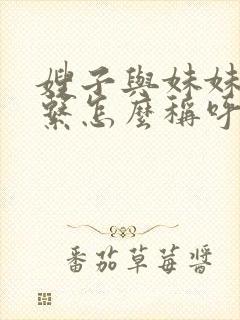 嫂子與妹妹
繫怎麼稱呼
番茄草莓醬